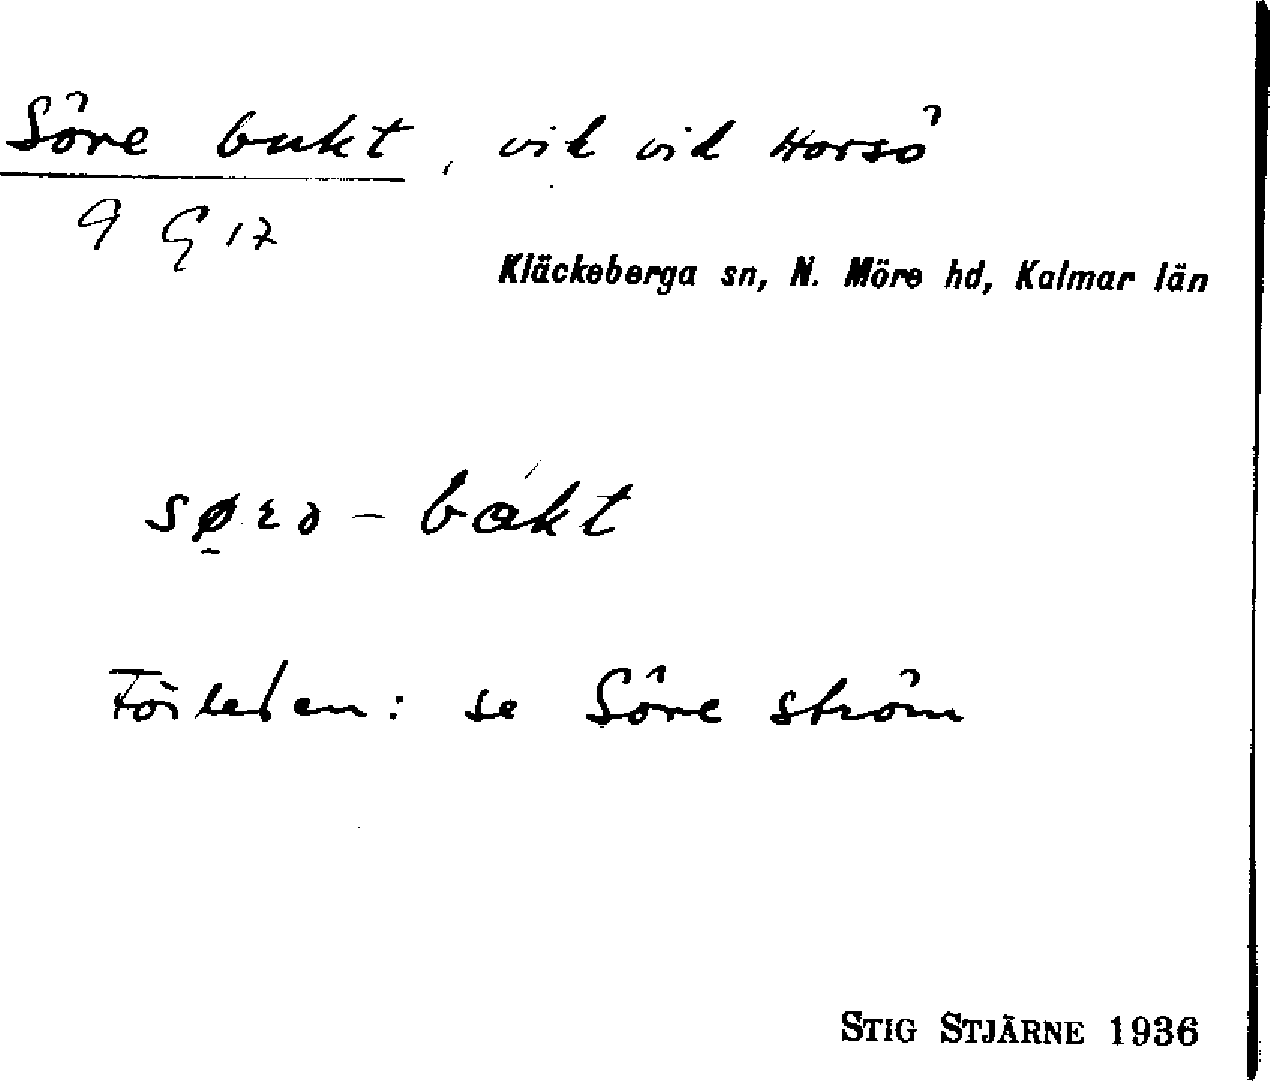 Söre bukt, vik vid Horsö
9 G 17
Kläckeberga sn, N. Möre hd, Kalmar län
Förleden: se Söre ström
STIG STJÄRNE 1936